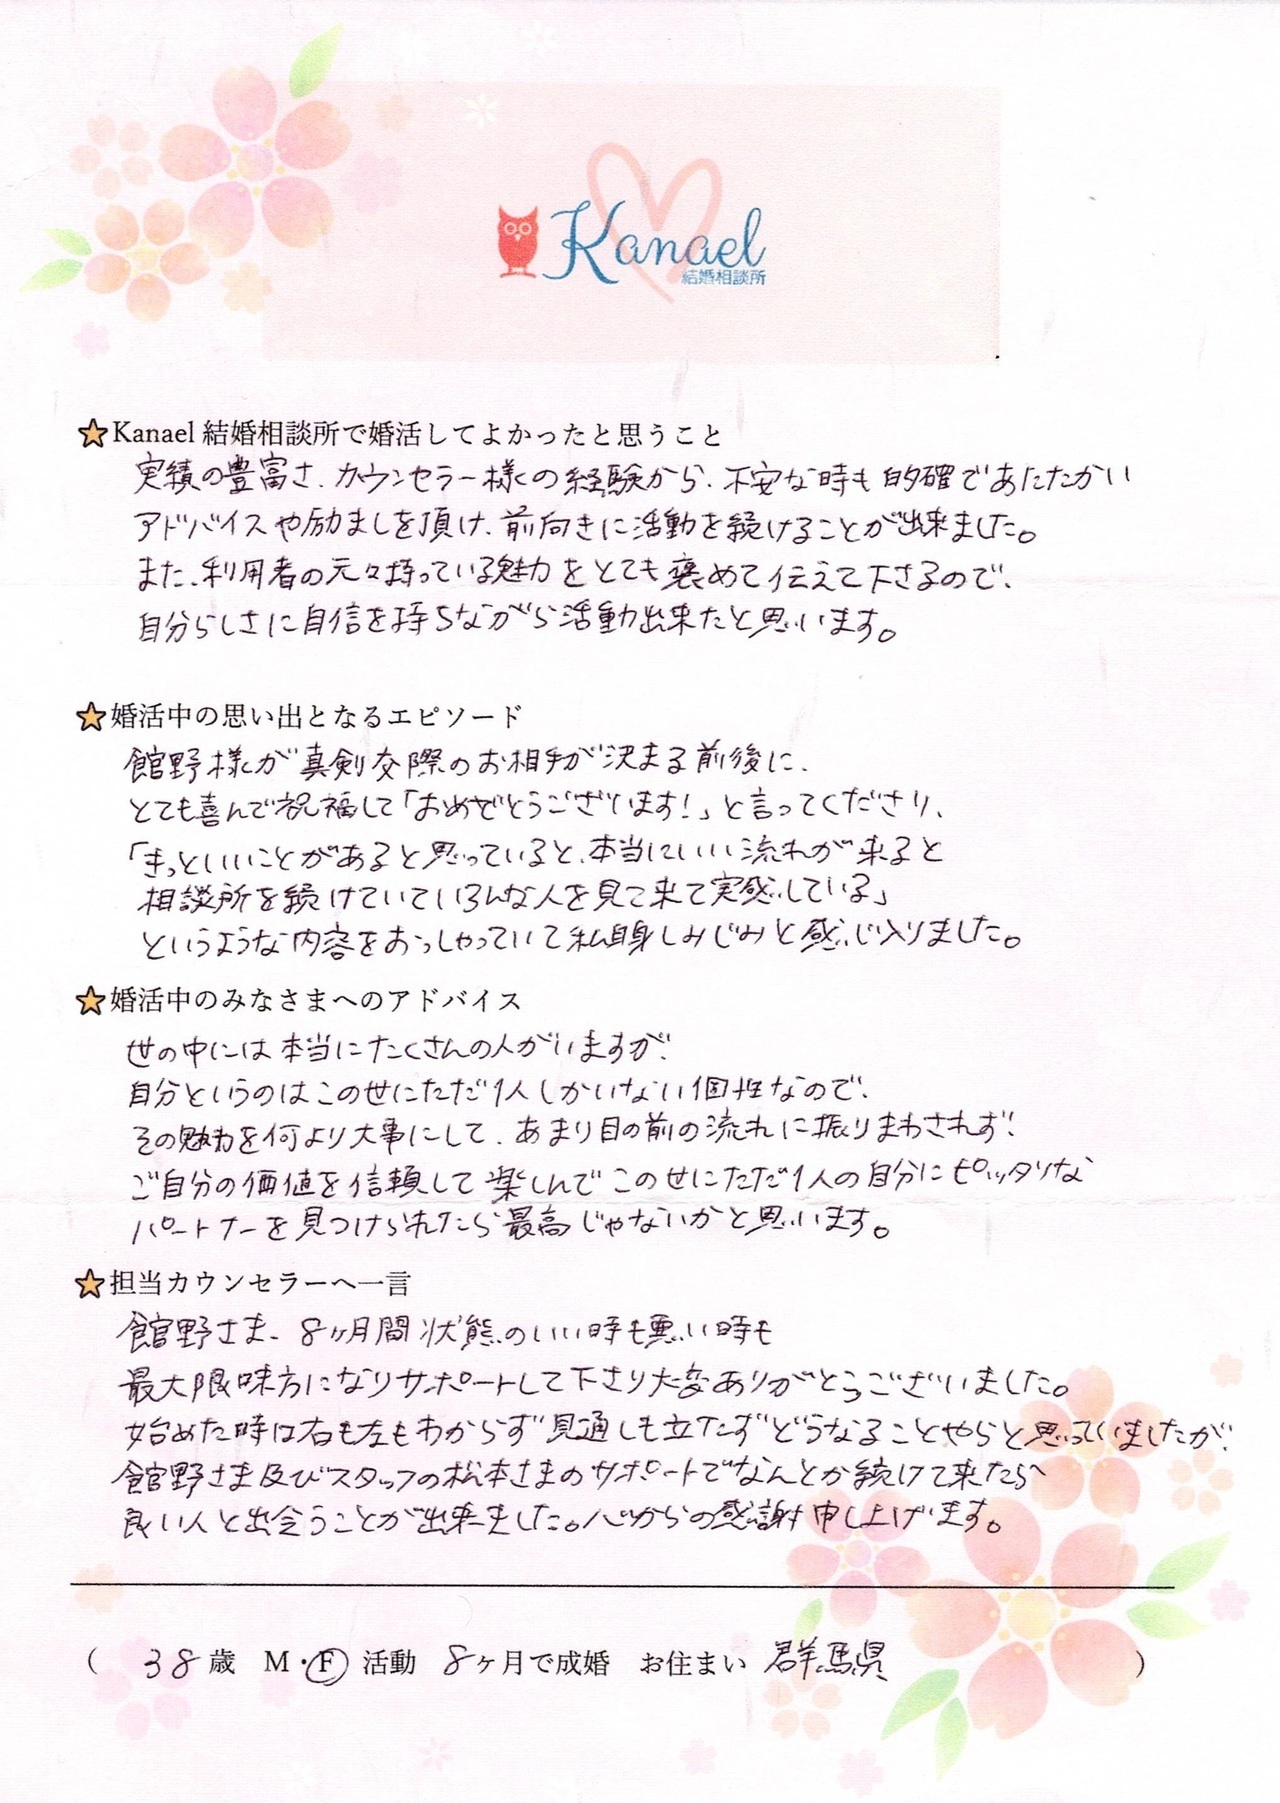 Kanael
結婚相談所
Kanael 結婚相談所で婚活してよかったと思うこと
実績の豊富さ、カウンセラー様の経験から、不安な時も的確であたたかい
アドバイスや励ましを頂け、前向きに活動を続けることが出来ました。
また、利用者の元々持っている魅力をとても褒めて伝えて下さるので、
自分らしさに自信を持ちながら活動出来たと思います。
婚活中の思い出となるエピソード
館野様が真剣交際のお相手が決まる前後に、
とても喜んで祝福して「おめでとうございます!」と言ってくださり、
「きっといいことがあると思っていると、本当にいい流れが来ると
相談所を続けていていろんな人を見て来て実感している」
というような内容をおっしゃっていて私自身しみじみと感じ入りました。
婚活中のみなさまへのアドバイス
世の中には本当にたくさんの人がいますが、
自分というのはこの世にただ1人しかいない個性なので、
その魅力を何より大事にして、あまり目の前の流れに振りまわされず、
ご自分の価値を信頼して楽しんでこの世にただ1人の自分にピッタリな
パートナーを見つけられたら最高じゃないかと思います。
担当カウンセラーへ一言
館野さま、8ヶ月間状態のいい時も悪い時も
最大限味方になりサポートして下さり大変ありがとうございました。
始めた時は右も左もわからず見通しも立たずどうなることやらと思っていましたが、
館野さま及びスタッフの松本さまのサポートでなんとか続けて来たら
良い人と出会うことが出来ました。心からの感謝申し上げます。
( 38歳 M・F 活動 8ヶ月で成婚 お住まい 群馬県 )